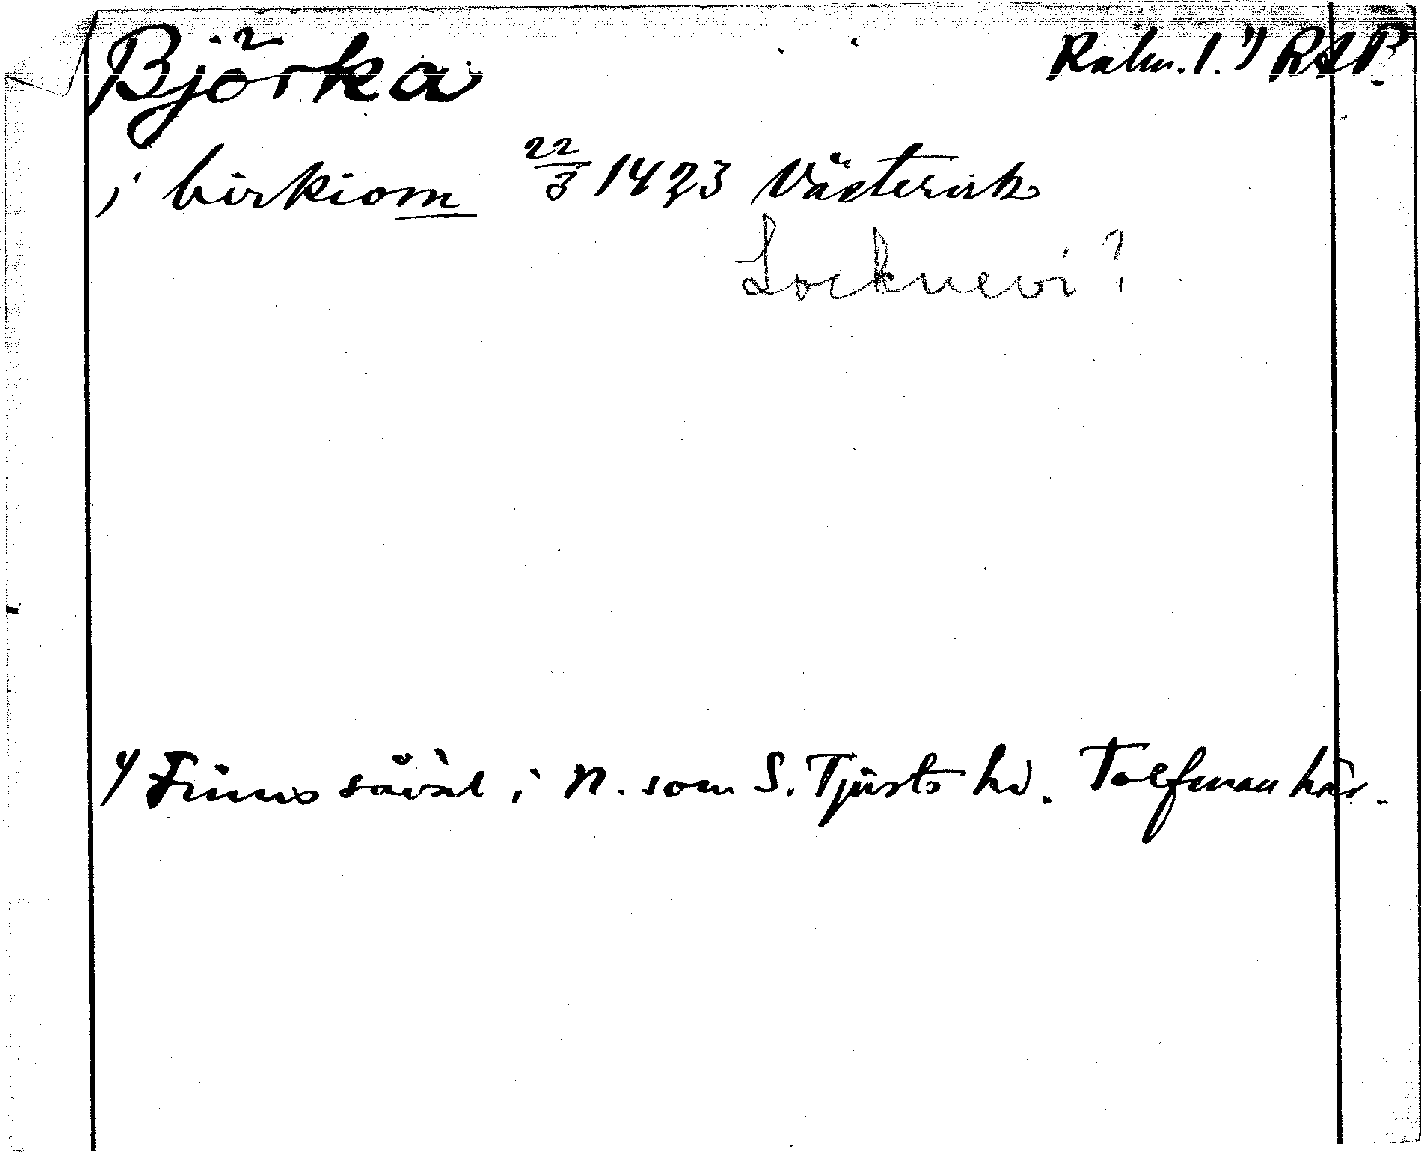 Björka Kalm. l. 1) RAP.
i birkiom 22/3 1423 Västervik
Locknevi?
1) Finns såväl i N. som S. Tjusts hd. Tolfman här.